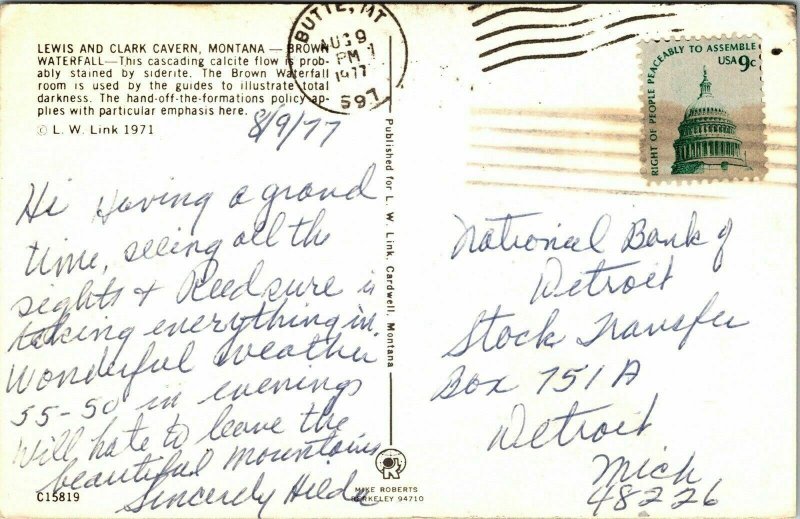 LEWIS AND CLARK CAVERN, MONTANA — BROWN
WATERFALL—This cascading calcite flow is prob-
ably stained by siderite. The Brown Waterfall
room is used by the guides to illustrate total
darkness. The hand-off-the-formations policy ap-
plies with particular emphasis here.
© L. W. Link 1971
BUTTE, MT
AUG 9
PM
1977
597
RIGHT OF PEOPLE PEACEABLY TO ASSEMBLE
USA 9c
8/9/77
Hi Having a grand
time, seeing all the
sights & sure is
taking everything in.
Wonderful weather
55-50 in evenings
Will hate to leave the
beautiful mountains
Sincerely Hilda
Published for L. W. Link, Cardwell, Montana
National Bank of
Detroit
Stock Transfer
Box 751 A
Detroit
Mich
48226
C15819
MIKE ROBERTS
BERKELEY 94710